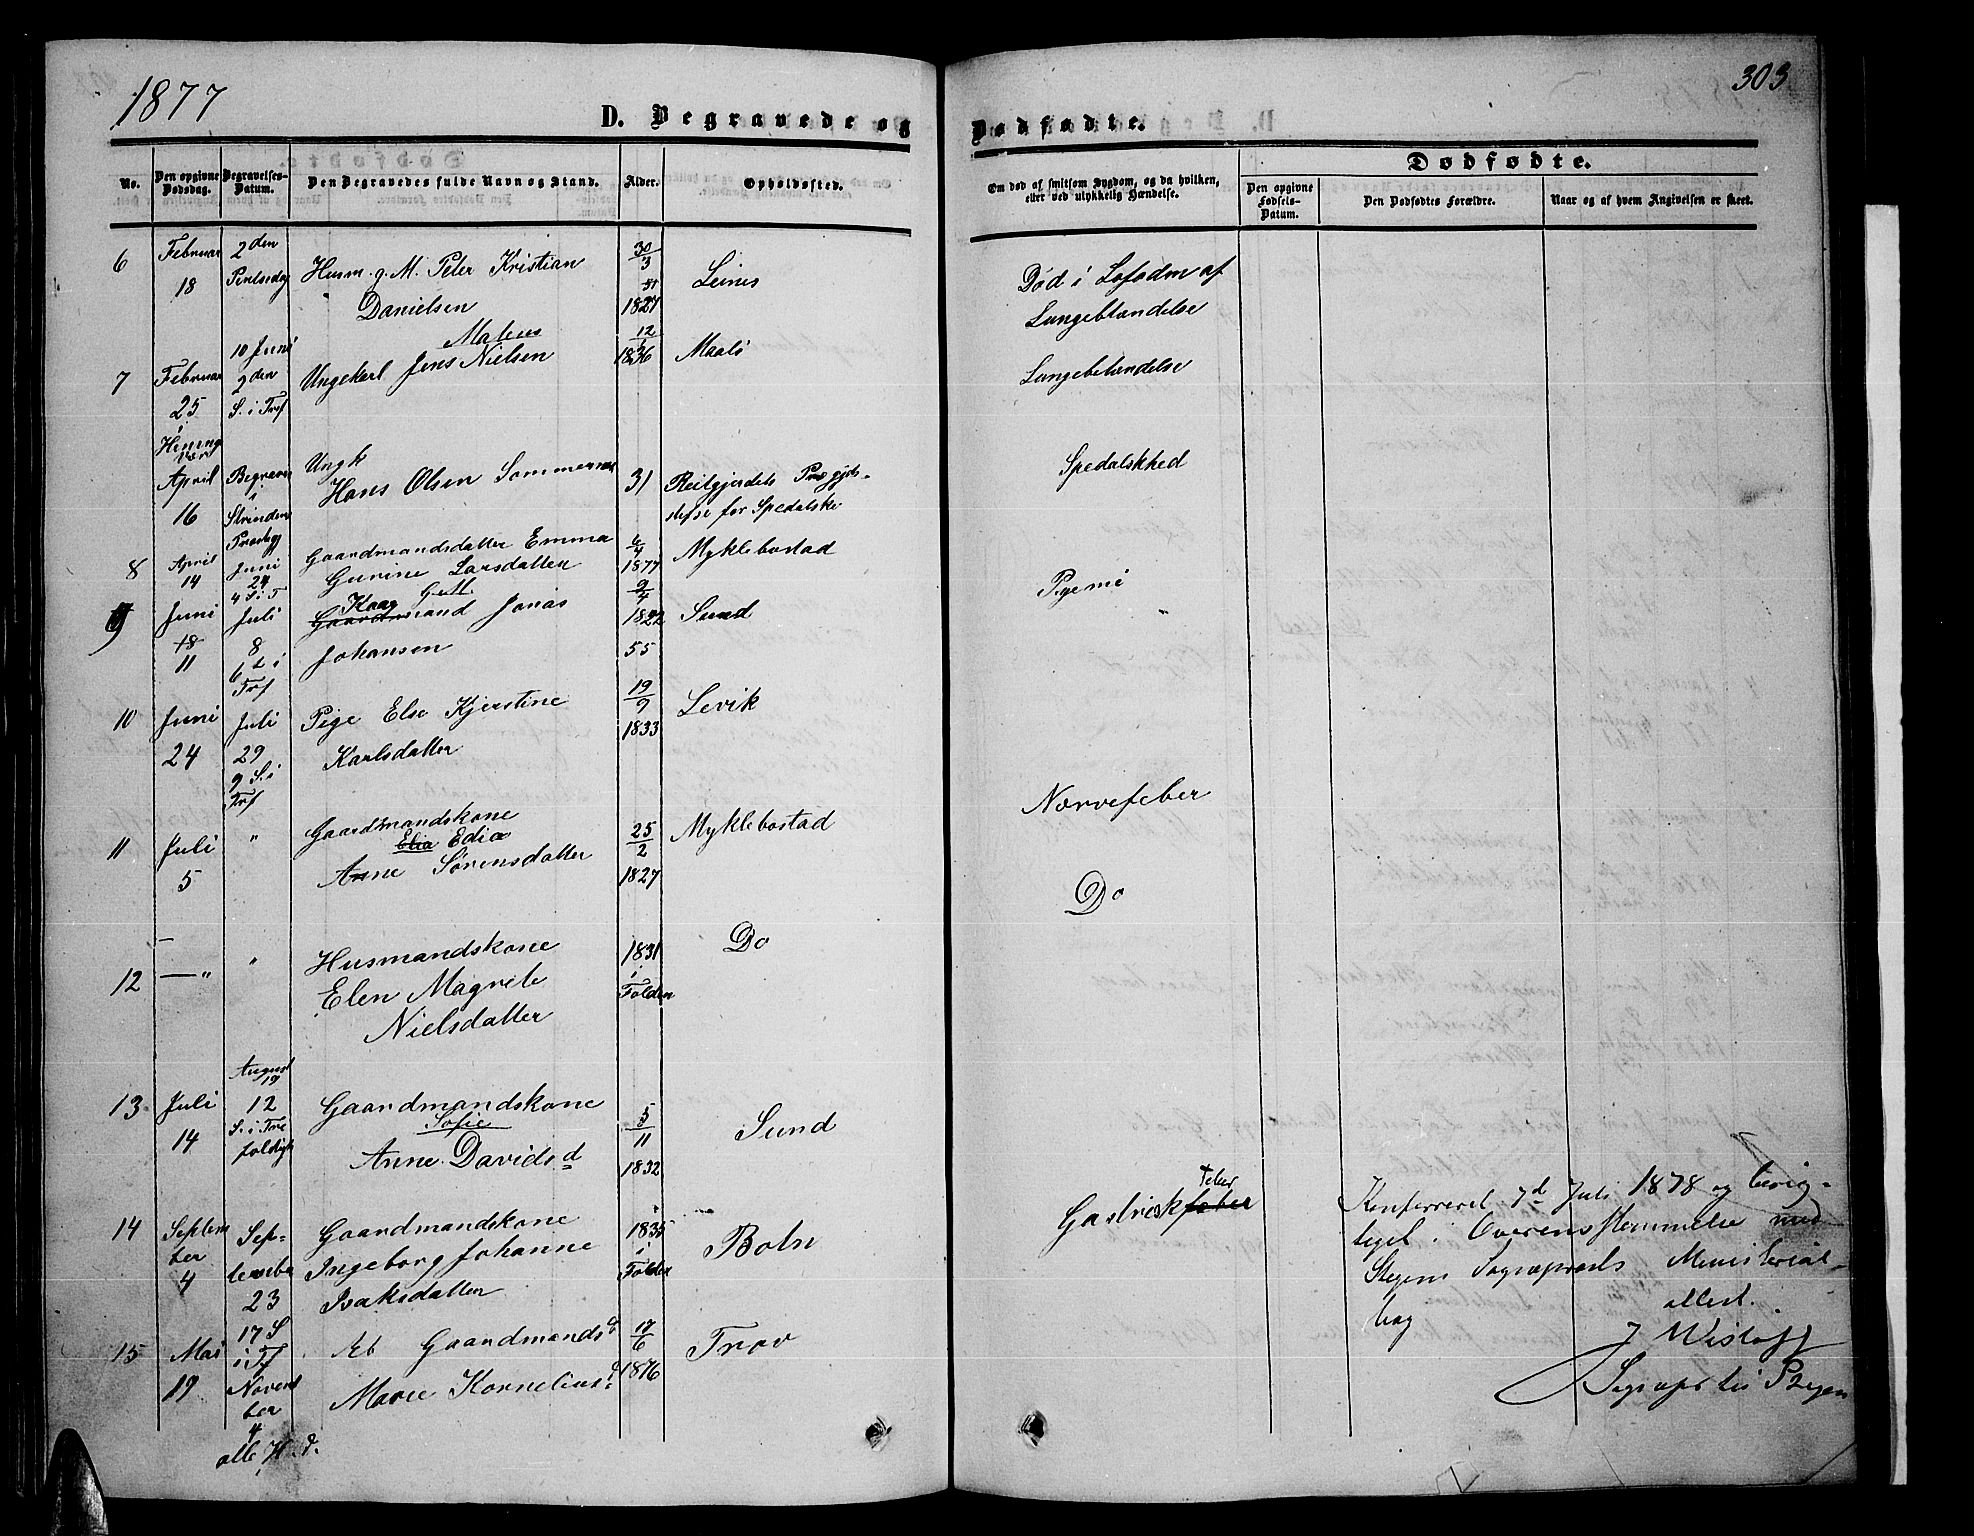 1877
303
D. Begravede og Dødfødte.
No.
Den opgivne Dødsdag.
Begravelses-Datum.
Den Begravedes fulde Navn og Stand.
Alder.
Opholdssted.
Om død af smitsom Sygdom, og da hvilken,
eller ved ulykkelig Hændelse.
Dødfødte.
Den opgivne Fødsels-Datum.
Den Dødfødtes Forældre.
Naar og af hvem Angivelsen er skeet.
6 Februar 2den Husm. g. M. Peter Kristian 30/3 Leines Død i Lofoden af
18 Pintsedag Danielsen 1827 Lungebtændelse
10 Juni Mateus 12
7 Februar 2den Ungekarl Jens Nielsen 1836 Maalö Lungebetændelse
25 S. i Tref
i Hening
Vær
Ungk
April Begraven Hans Olsen Sommernes 31 Reitgjerdets Spedalskhed
16 i Strindens stefse for Spedalske
Præstegj
8 April Juni Gaardmandsdatter Emma 6/4 Myklebostad
14 24 Gurine Larsdatter 1877
4 S i T
9 Juni Juli Kaar Gaardmand Jonas 9/4 1822 Sund
18 8 Johansen 55
11 6 S i
Tref
10 Juni Juli Pige Else Kjerstine 19/9 Levik
24 29 Karlsdatter 1833
9 S. i
Tref
11 Juli " Gaardmandskone 25/2 Myklebostad Nervefeber
Elia Edia
5 Anne Sørensdatter 1827 Do
12 — " " Husmandskone 1831 Do
Elen Magrete i Folden
Nielsdatter
August
19
13 Juli 12 Gaardmandskone 5/11 Sund
14 S. i Tre Sofie
foldigh Anne Davidsd 1832
feber
14 Septem Sep- Gaardmandskone 1835 Botn Gastriskfeber
ber tember Ingeborg Johanne i
4 23 Isaksdatter Folden
17 S
i Tf
15 Mai Novem Et Gaardmands 17/6 Trov
19 ber Marie Kornelius 1876
4
alle H. d.
Konferreret 7d Juli 1878 og bevig-
tiget i Overensstemmelse med
Stegens Sogneprests Ministerial-
bog attest.
J Wisløff
Sognepr til Stegen